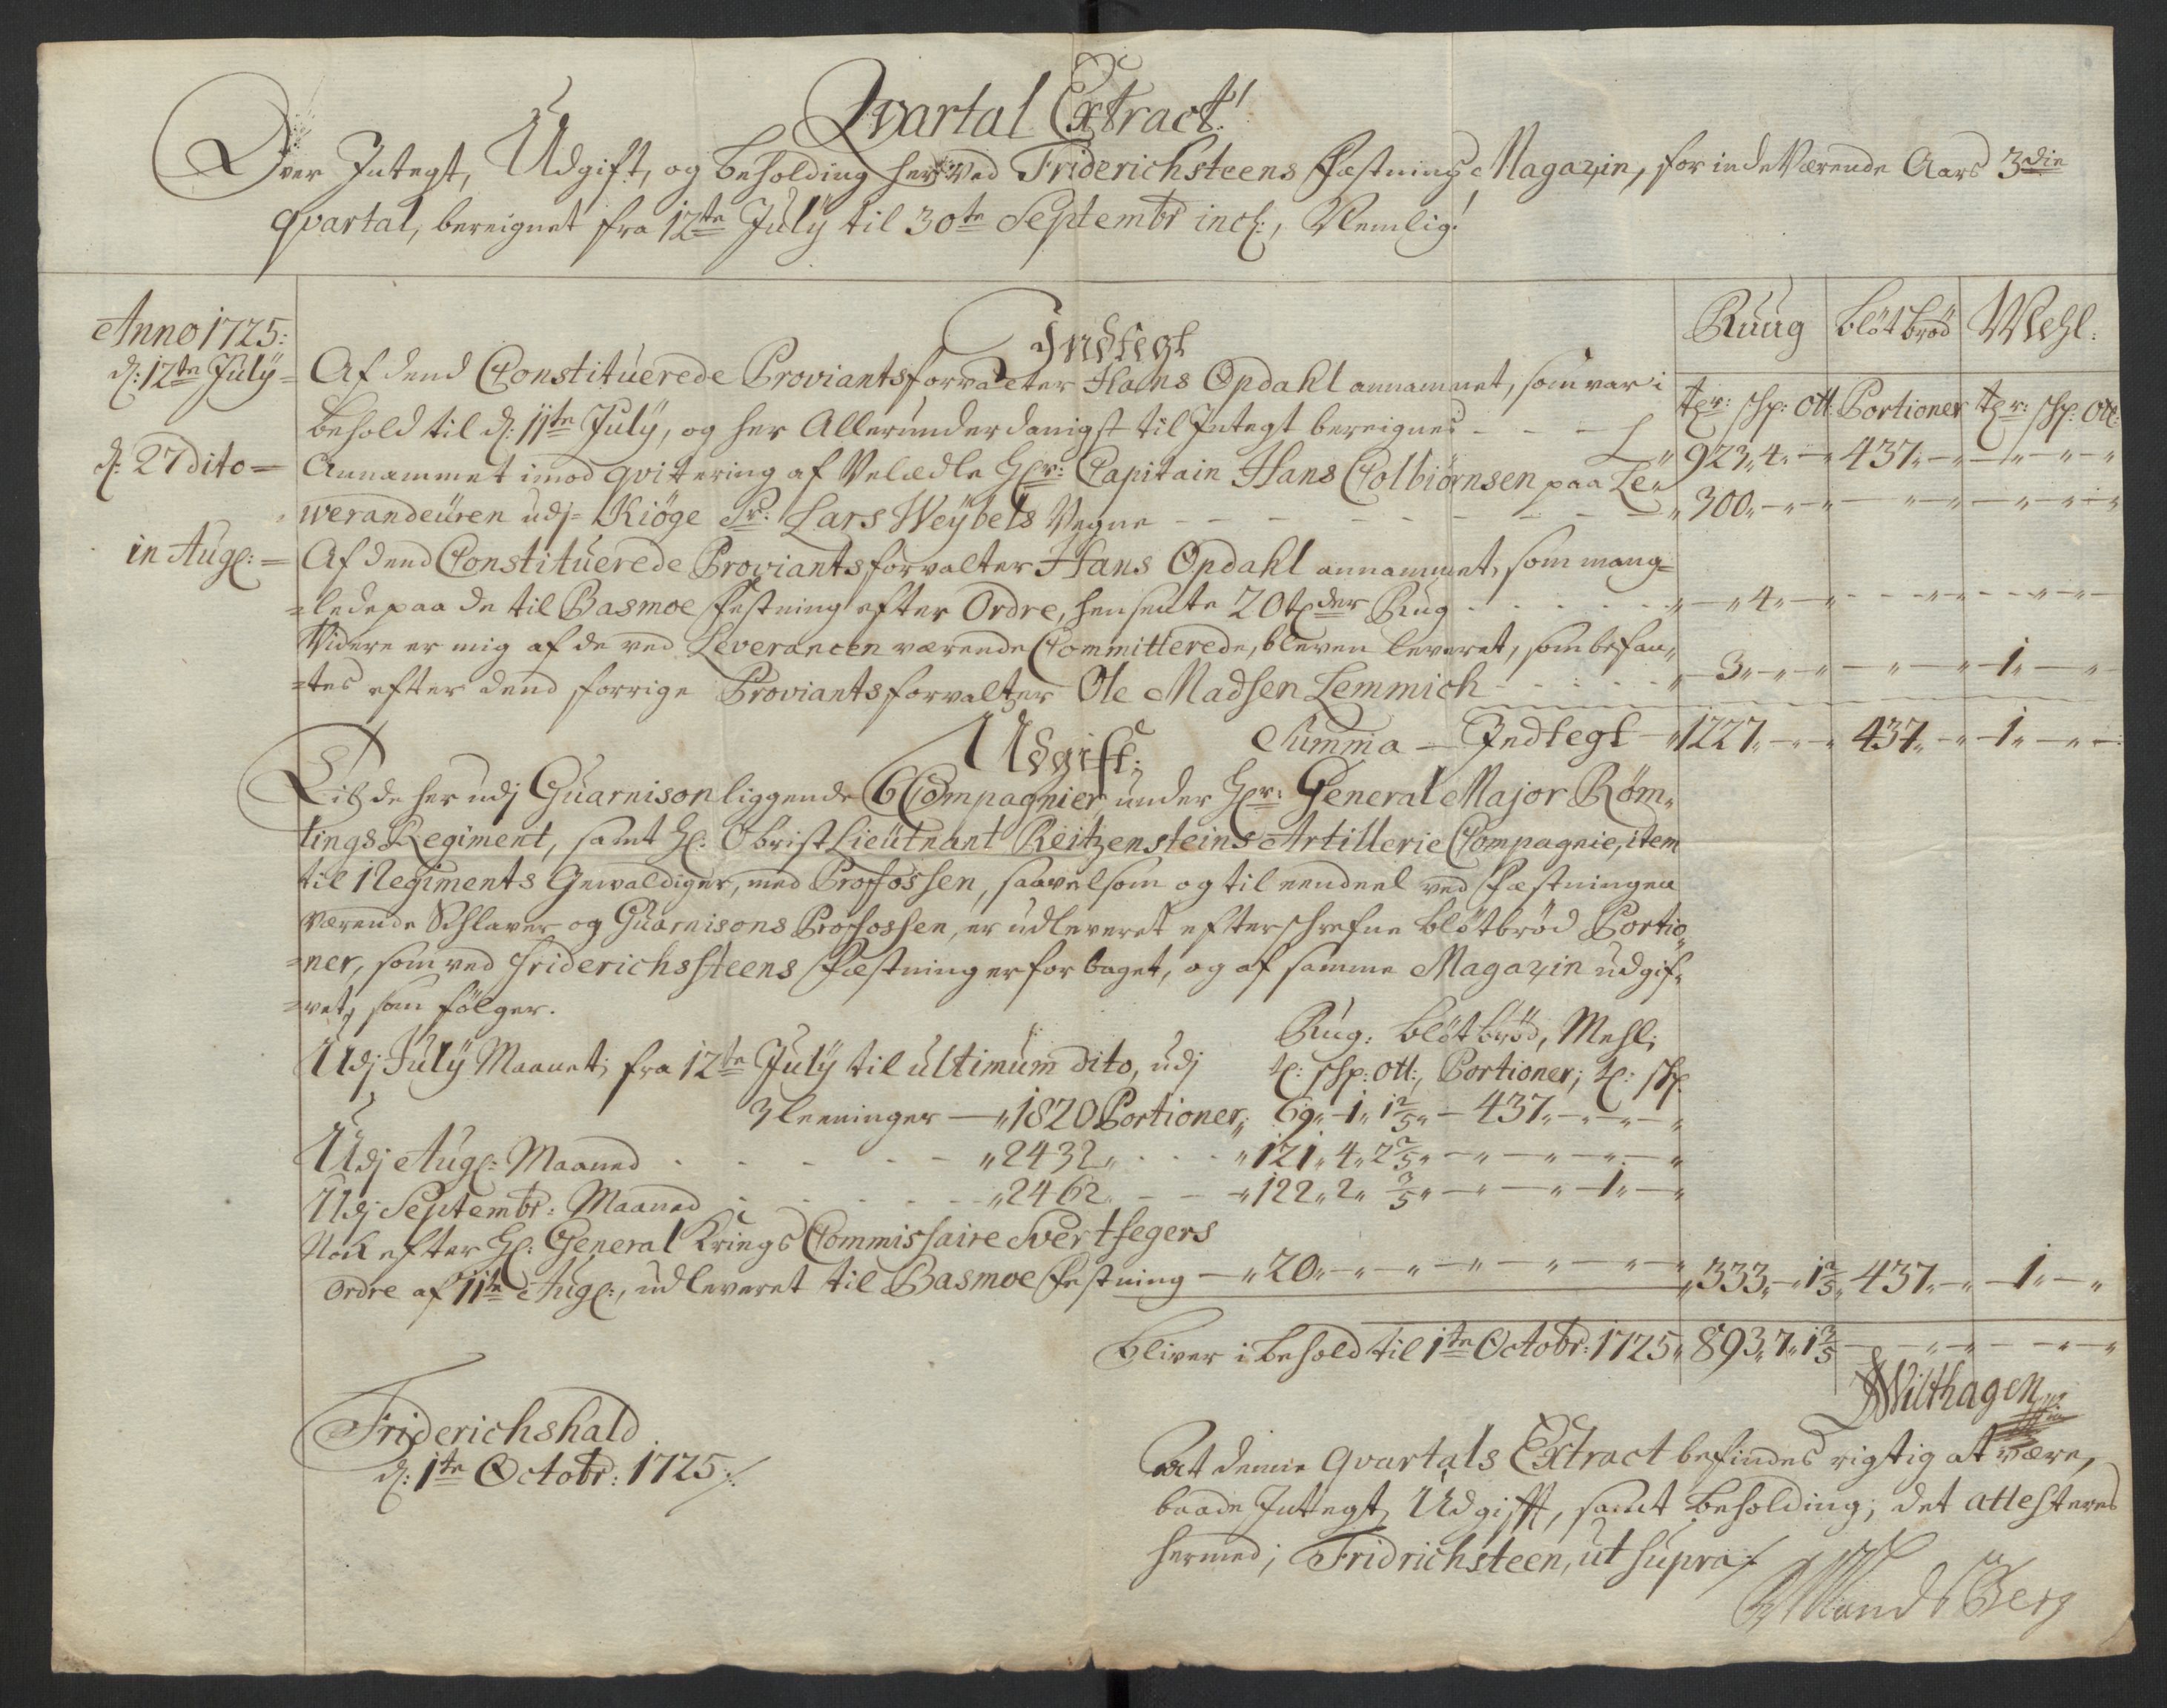 Qvartal Extract!
Over Integt, Udgift, og beholding her ved Friderichsteens Fæstnings Magazin, for indeværende Aars 3die
qvartal, bereignet fra 12te Julÿ til 30te Septembr incl:, Nemlig!
Anno 1725:
Indtegt
Ruug bløtbrød Mehl:
d: 12te Julÿ= Af dend Constituerede Proviantsforvalter Hans Opdahl annammet, som var i
tr: shp: ott: Portioner tr: shp: ott:
behold til d: 11te Julÿ, og her Allerunderdanigst til Integt bereignes - - - „ 923„ 4„ - 437„ - „ - „ - „ - „
d: 27 dito = Annammet imod qvitering af Velædle Hr: Capitain Hans Colbiørnsen paa Le„
werandeuren udj= Kiöge Sr: Lars Weÿbels Vegne - - - - - - - „ 300„ - „ - „ - „ - „ - „ - „
in Aug: = Af dend Constituerede Proviantsforvalter Hans Opdahl annammet, som mang=
=lede paa de til Basmoe festning efter Ordre, hensente 20 tder Rug - - - - „ - „ 4„ - „ - „ - „ - „ - „
Videre er mig af de ved Leverancen værende Committerede, bleven leveret, som befan„
=tes efter dend forrige Proviantsforvalter Ole Madsen Lemmich - - - - „ 3„ - „ - „ - „ - „ 1„ - „
Udgift;
Summa - Indtegt - „ 1227„ - „ - „ 437„ - „ 1„ - „ -
Til de her udj Guarnison liggende 6 Compagnier under Hr: General Major Røm„
lings Regiment, samt H: Obrist Lieutnant Reitzensteins Artillerie Compagnie, item
til 1 Regiments Gewaldiger, med Profossen, saavelsom og til eendeel ved Fæstningen
værende Schlaver og Guarnisons Profossen, er udleveret efterschrefne bløtbrød Portio„
=ner, som ved Friderichssteens Fæstning er forbaget, og af samme Magazin udgif„
=vet, som følger.
Rug: bløtbrød, Mehl;
Udj Julÿ Maanet, fra 12te Julÿ til ultimum dito, udj t: shp: ott:, Portioner; t: shp
3 leeninger - „ 1820 Portioner„ 69„ 1„ 1 2/5 „ - 437„ - „ - „ - „
Udj Aug: Maaned - - - - - „ 2432„ - - - „ 121„ 4„ 2 2/5 „ - „ - „ - „ - „
Udj Septembr: Maaned - - - - - „ 2462 - - - „ 122„ 2„ 3/5 „ - „ - „ 1„ - „
Nock efter H: General Krigs Commissaire Svertfegers
Ordre af 11te Aug:, udleveret til Basmoe festning - „ 20„ - „ - „ - „ - „ - „ - „ „ 333„ - „ 1 2/5 „ 437„ - „ 1„ - „
bliver i behold til 1te Octobr: 1725„ 893„ 7„ 1 3/5 - „ - „ - „ - „
Wilthagen
Friderichshald
d: 1te Octobr: 1725./.
at denne qvartals Extract befindes rigtig at være,
baade Inttegt, Udgifft, samt beholding; det attesteres
hermed; Fridrichsteen, ut supra./.
Berg